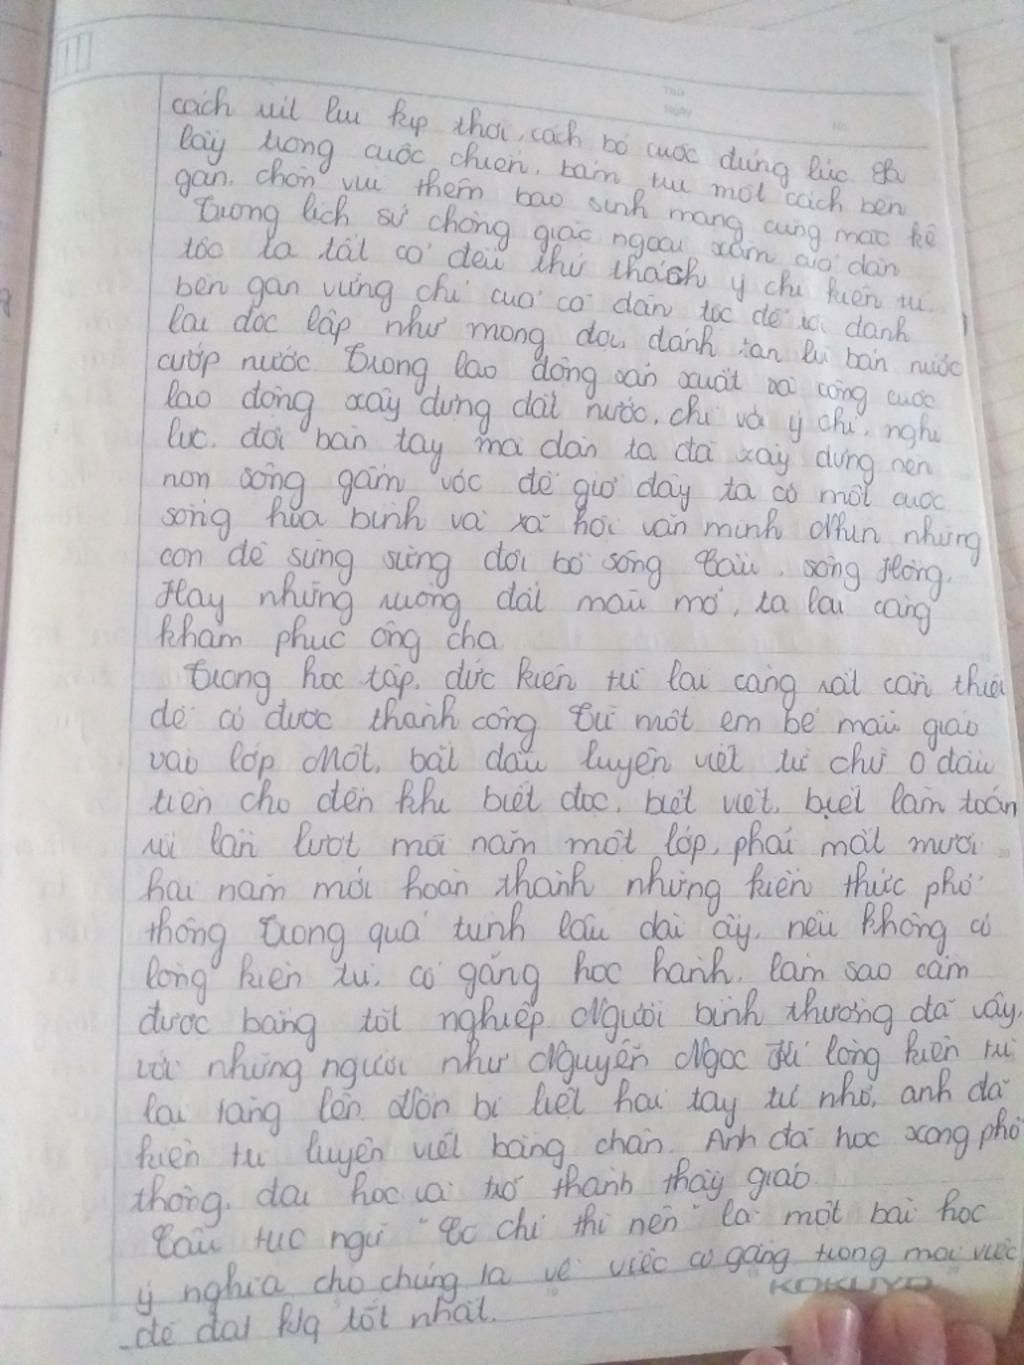 cách rút lui kịp thời, cách bỏ cuộc đúng lúc. Sa
lầy trong cuộc chiến, bám trụ một cách bền
gan, chôn vùi thêm bao sinh mạng cũng mặc kệ
Trong lịch sử chống giặc ngoại xâm của dân
tộc ta tất cả đều thử thách ý chí kiên trì
bền gan vững chí của cả dân tộc để rồi dành
lại độc lập như mong đợi, đánh tan lũ bán nước
cướp nước. Trong lao động sản xuất và công cuộc
lao động xây dựng đất nước, chỉ với ý chí, nghị
lực, đôi bàn tay mà dân ta đã xây dựng nên
non sông gấm vóc để giờ đây ta có một cuộc
sống hòa bình và xã hội văn minh. Nhìn những
con đê sừng sững đôi bờ sông Cầu, sông Hồng.
Hay những ruộng đất màu mỡ, ta lại càng
khâm phục ông cha
Trong học tập, đức kiên trì lại càng rất cần thiết
để có được thành công. Từ một em bé mẫu giáo
vào lớp Một, bắt đầu luyện viết từ chữ O đầu
tiên cho đến khi biết đọc, biết viết, biết làm toán
rồi lần lượt mỗi năm một lớp, phải mất mười
hai năm mới hoàn thành những kiến thức phổ
thông. Trong quá trình lâu dài ấy, nếu không có
lòng kiên trì, cố gắng học hành, làm sao cầm
được bằng tốt nghiệp. Người bình thường đã vậy,
với những người như Nguyễn Ngọc Kí lòng kiên trì
lại tăng lên. Vốn bị liệt hai tay từ nhỏ, anh đã
kiên trì luyện viết bằng chân. Anh đã học xong phổ
thông, đại học và trở thành thầy giáo
Câu tục ngữ "Có chí thì nên" là một bài học
ý nghĩa cho chúng ta về việc cố gắng trong mọi việc
để đạt k/q tốt nhất.
KOKUYO